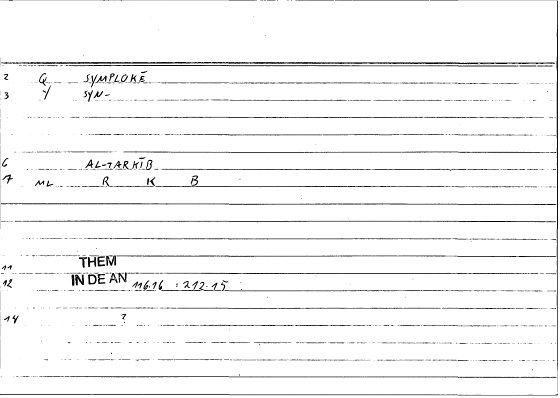 2 Q SYMPLOKĒ
3 Y SYN-
6 AL-TARKĪB
7 ML R K B
11 THEM
12 IN DE AN 116.16 : 212.15
14 ?